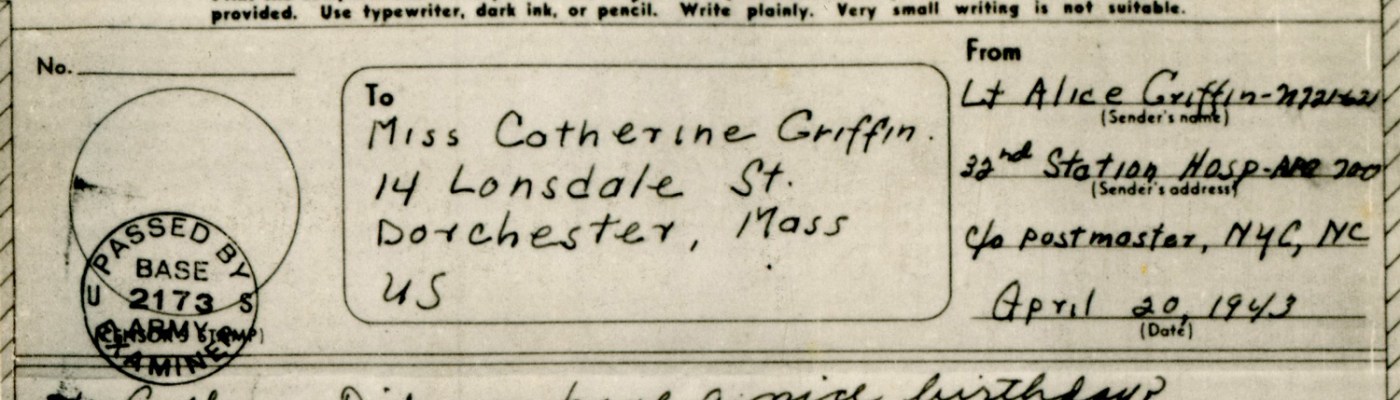 provided. Use typewriter, dark ink, or pencil. Write plainly. Very small writing is not suitable.
No.
To
Miss Catherine Griffin.
14 Lonsdale St.
Dorchester, Mass
US
From
Lt Alice Griffin-N721621
(Sender's name)
32nd Station Hosp-APO 700
(Sender's address)
c/o postmaster, NYC, NC
April 20, 1943
(Date)
PASSED BY
BASE
U 2173 S
ARMY
EXAMINER
(CENSOR'S STAMP)
nice birthday?